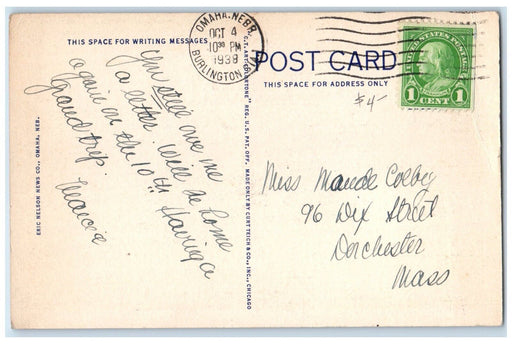 THIS SPACE FOR WRITING MESSAGES
You still owe me
a letter will be home
again on the 10th Having a
grand trip.
Marcia
ERIC NELSON NEWS CO., OMAHA, NEB.
"C.T. ART-COLORTONE" REG. U.S. PAT. OFF. MADE ONLY BY CURT TEICH & CO., INC., CHICAGO
OMAHA, NEBR.
OCT 4
10 30 PM
1938
BURLINGTON STA.
POST CARD
THIS SPACE FOR ADDRESS ONLY
UNITED STATES POSTAGE
1 CENT 1
$4-
Miss Maude Colby
96 Dix Street
Dorchester
Mass